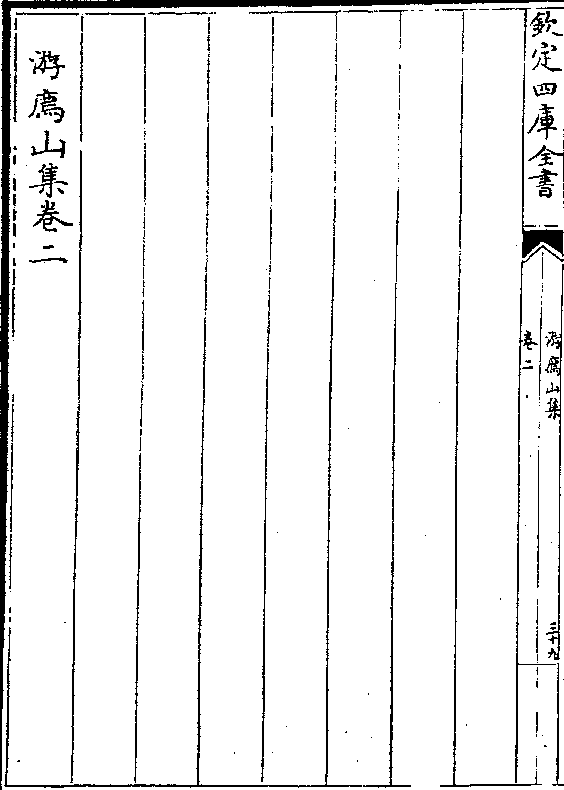 欽定四庫全書
游廌山集
卷二
三十九
游廌山集卷二